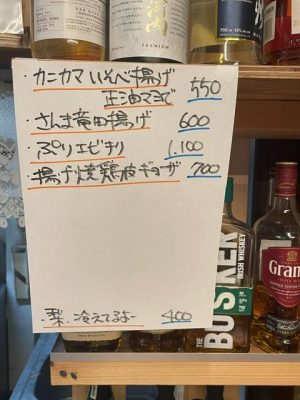 PREMIUM
・カニカマ いそべ揚げ 550
正油マヨで
・さんま竜田揚げ 600
・ぷりエビチリ 1.100
・揚げ焼鶏皮ギョーザ 700
・梨、冷えてるよー 400
THE
BUSKER
IRISH WHISKEY
Grant's